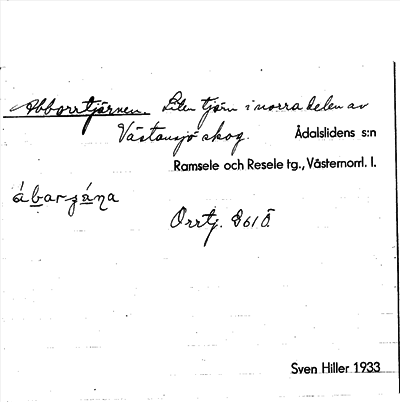 Abborrtjärnen. Liten tjärn i norra delen av
Västansjö skog. Ådalslidens s:n
Ramsele och Resele tg., Västernorrl. l.
ábarʒána
Orrtj. 861Ö
Sven Hiller 1933